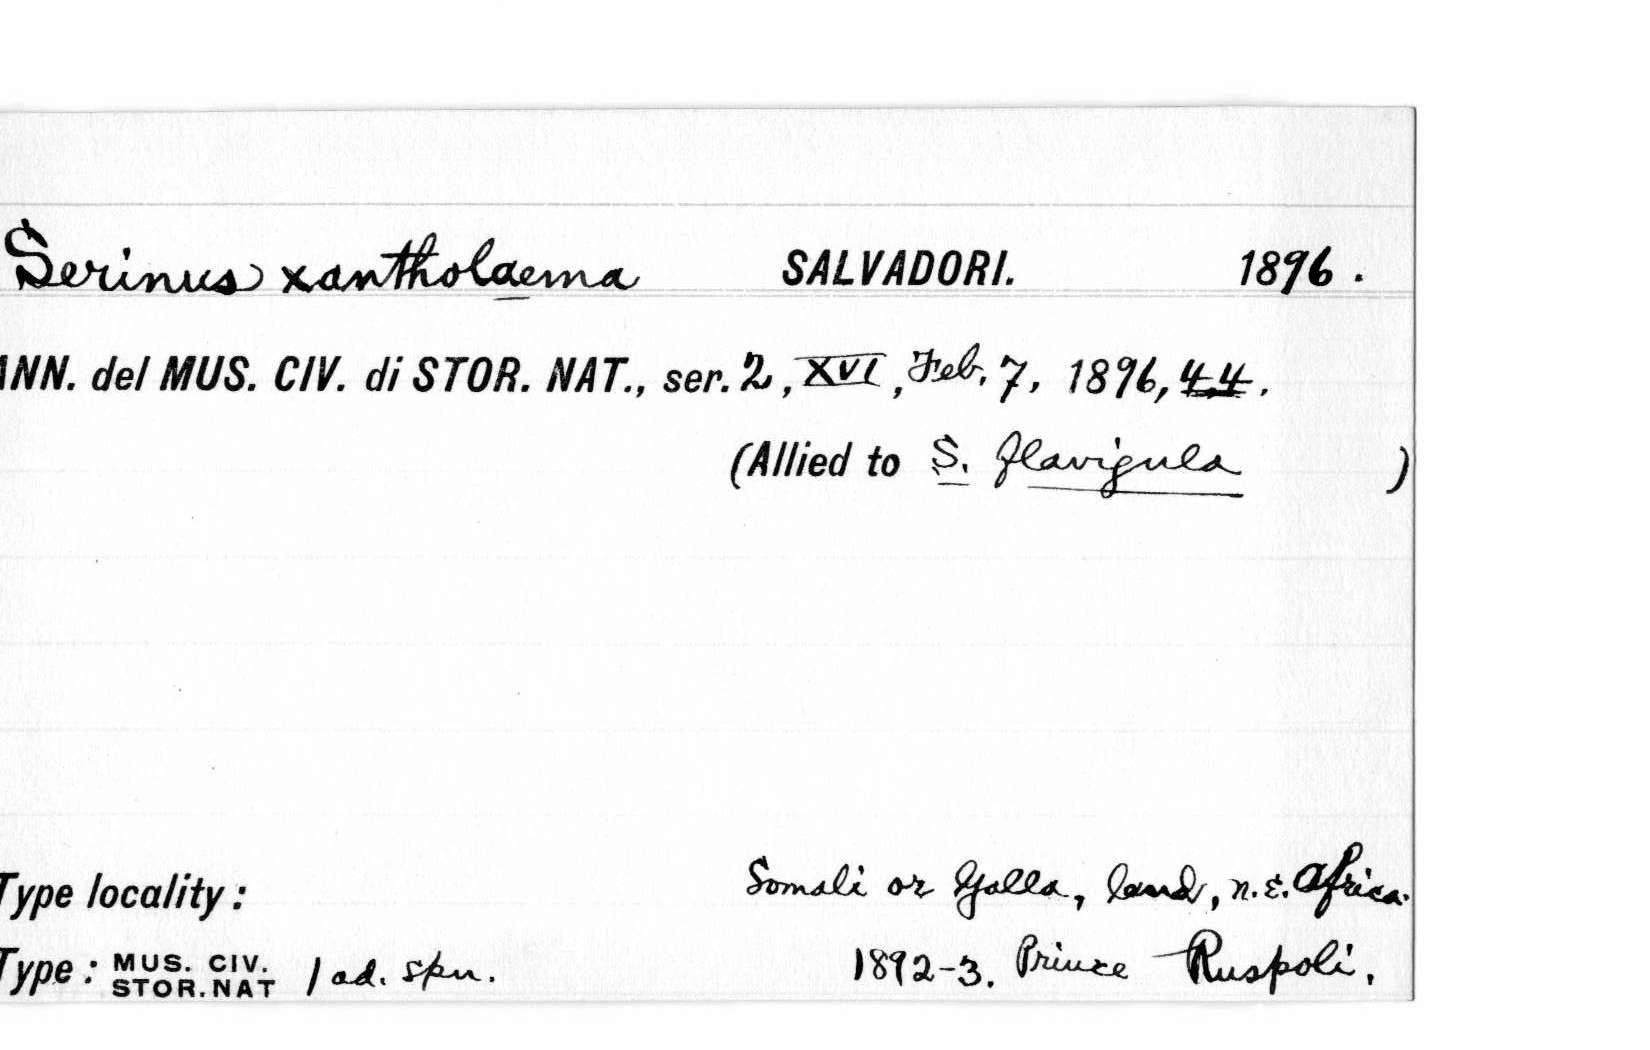 Serinus xantholaema SALVADORI. 1896.
ANN. del MUS. CIV. di STOR. NAT., ser. 2, XVI, Feb. 7, 1896, 44.
(Allied to S. flavigula )
Type locality: Somali or Galla, land, n.e. Africa.
Type: MUS. CIV. STOR. NAT 1 ad. spn. 1892-3. Prince Ruspoli.